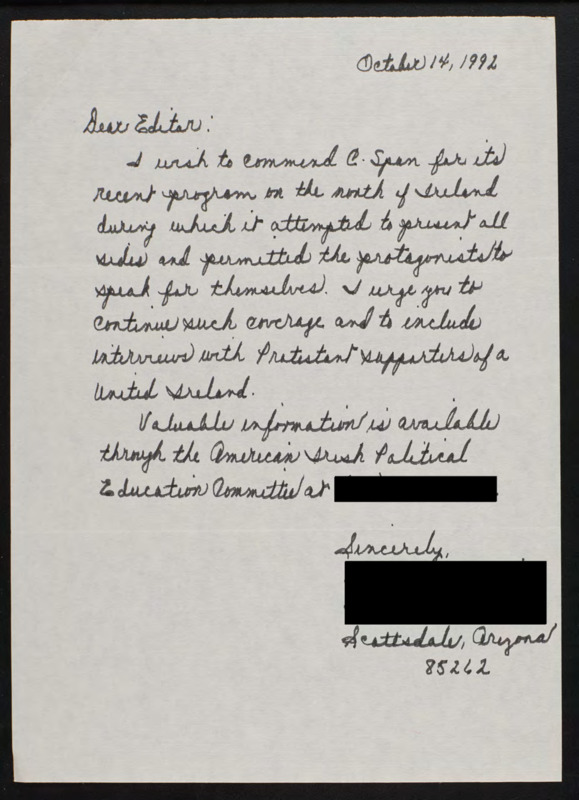 October 14, 1992
Dear Editor:
I wish to commend C-Span for its
recent program on the north of Ireland
during which it attempted to present all
sides and permitted the protagonists to
speak for themselves. I urge you to
continue such coverage and to include
interviews with Protestant supporters of a
United Ireland.
Valuable information is available
through the American Irish Political
Education Committee at
Sincerely,
Scottsdale, Arizona
85262